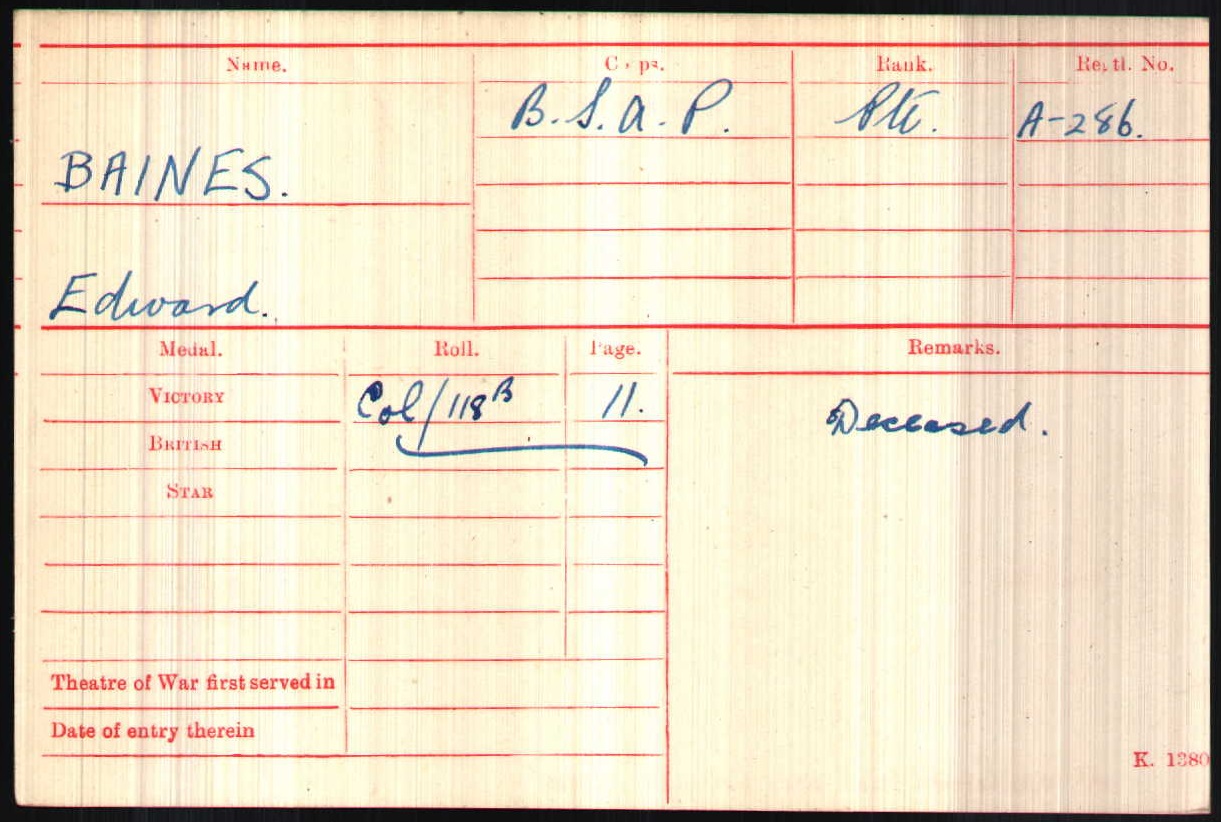 Name. Corps. Rank. Regtl. No.
B.S.A.P. Pte. A-286.
BAINES.
Edward.
Medal. Roll. Page. Remarks.
VICTORY Col/118B 11. Deceased.
BRITISH
STAR
Theatre of War first served in
Date of entry therein
K. 1380